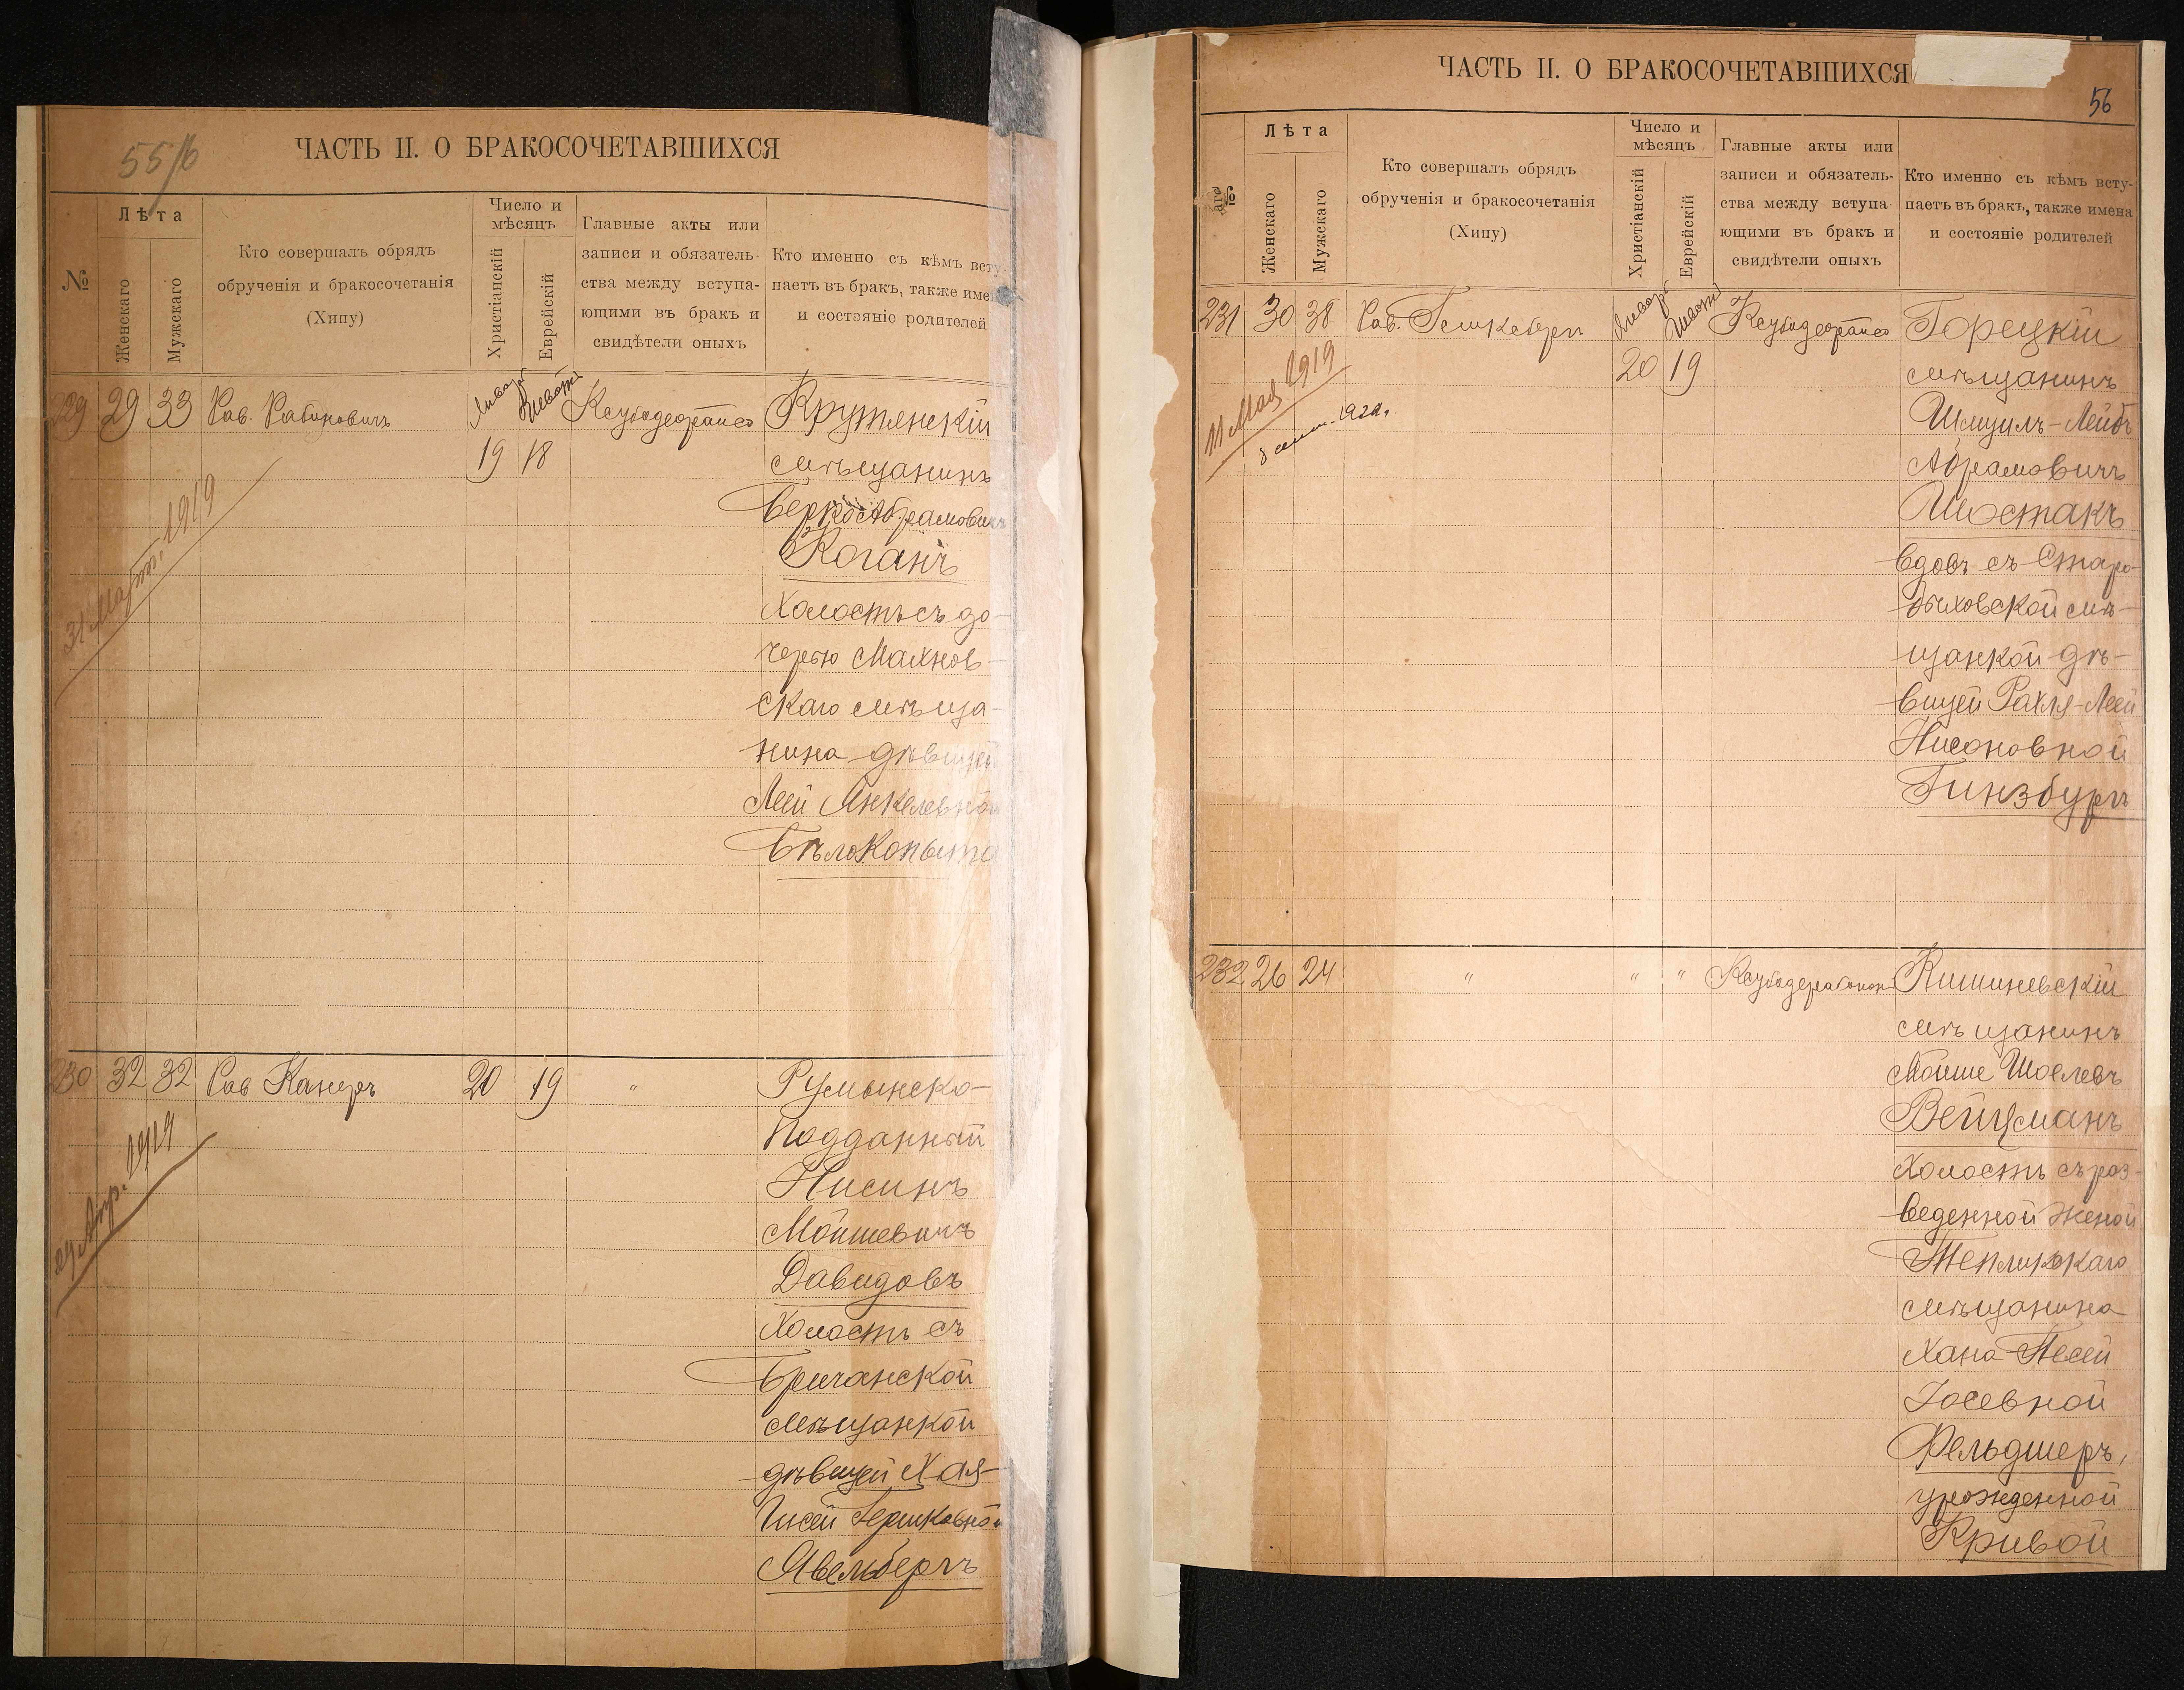 55/б
ЧАСТЬ II. О БРАКОСОЧЕТАВШИХСЯ
№
Лѣта
Женскаго
Мужскаго
Кто совершалъ обрядъ
обрученія и бракосочетанія
(Хипу)
Число и
мѣсяцъ
Христіанскій
Еврейскій
Главные акты или
записи и обязатель-
ства между вступа-
ющими въ бракъ и
свидѣтели оныхъ
Кто именно съ кѣмъ всту-
паетъ въ бракъ, также имена
и состояніе родителей
229 29 33 Рав. Рабиновичъ
Январь Шеватъ
19 18
31 Март. 1919
Крутянскій
мѣщанинъ
Берко Абрамовичъ
Коганъ
Холостъ съ до-
черью Махнов-
скаго мѣща-
нина дѣвицей
Леей Янкелевной
Бѣлокопыта
230 32 32 Рав Канеръ 20 19 "
29 Апр. 1919
Румынско-
Подданный
Нисинъ
Мойшевичъ
Давидовъ
Холостъ съ
Бричанской
мѣщанкой
дѣвицей Хая-
Гисей Гершковной
Явельбергъ
ЧАСТЬ II. О БРАКОСОЧЕТАВШИХСЯ
56
№
Лѣта
Женскаго
Мужскаго
Кто совершалъ обрядъ
обрученія и бракосочетанія
(Хипу)
Число и
мѣсяцъ
Христіанскій
Еврейскій
Главные акты или
записи и обязатель-
ства между вступа-
ющими въ бракъ и
свидѣтели оныхъ
Кто именно съ кѣмъ всту-
паетъ въ бракъ, также имена
и состояніе родителей
231 30 38 Рав.
Январь Шеватъ
20 19
11 Мая 1919
Горецкій
мѣщанинъ
Шмуилъ-Лейбъ
Абрамовичъ
Шостакъ
вдовъ съ Старо-
быховской мѣ-
щанкой дѣ-
вицей Рахля-Леей
Нисоновной
Гинзбургъ
232 26 24 " " "
Кишиневскій
мѣщанинъ
Мойше Шоелевъ
Вейцманъ
Холостъ съ раз-
веденной женой
Тепликскаго
мѣщанина
Хана-Песей
Іосевной
Фельдшеръ,
урожденной
Кривой